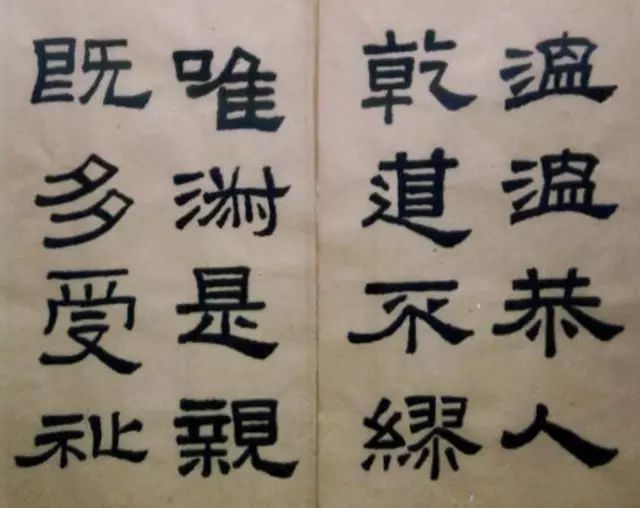 温温恭人
乾道不繆
唯淑是親
既多受祉